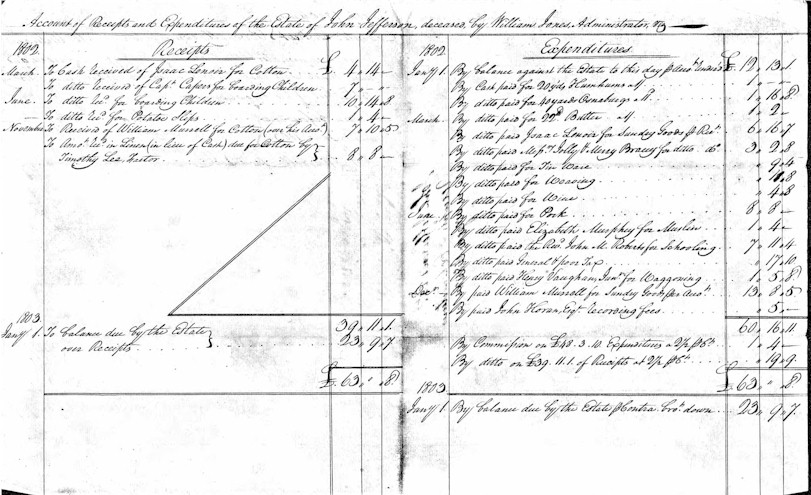 Account of Receipts and Expenditures of the Estate of John Jefferson, deceased, by William Jones, Administrator,
1802. Receipts £
March To Cash received of Isaac Lenoir for Cotton 4 " 14 "—
To ditto received of Capt. Capers for boarding Children 7 "— "—
June To ditto recd. for boarding Children 10 " 14 " 8
To ditto recd. for Potatoe Slips " 4 "—
November To Received of William Murrell for Cotton (over his Acct) 7 " 10 " 5
To Amot. recd. in Linen (in lieu of Cash) due for Cotton by
Timothy Lee, Factor 8 " 8 "—
39 " 11 " 1
1803
Jany 1. To balance due by the Estate
over Receipts 23 " 9 " 7
£ 63 " " 8
1802 Expenditures
Jany 1. By balance against the Estate to this day £ 12 " 13 " 1
By Cash paid for 20 yds Humhums 1
By ditto paid for 40 yards Osnaburgs 1 " 16 " 8
March By ditto paid for Butter 1 " 2 "—
By ditto paid Isaac Lenoir for Sundry Goods 6 " 16 " 7
By ditto paid Messrs. Jolly & Mercy for ditto do 3 " 2 " 8
By ditto paid for Tin Ware " 9 " 4
By ditto paid for Weaving " 8
By ditto paid for Wine " 4 " 8
June By ditto paid for Pork 8 " 8 "—
By ditto paid Elizabeth Murphey for Muslin 1 " 4 "—
By ditto paid the Revd. John M. Roberts for Schooling 7 " 11 " 4
By ditto paid General & poor Tax " 17 " 10
By ditto paid Henry Vaughan, Junr. for Waggoning 1 " 5 " 8
Decr By paid William Murrell for Sundry Goods per Acct. 13 " 8 " 5
By paid John Horan, Esqr. recording fees " 5 "—
60 " 16 " 11
By Commission on £48. 3. 10 Expenditures a 2½ 1 " 4 "—
By ditto on £39. 11. 1. of Receipts at 2½ " 19 " 9
£ 63 " " 8
1803
Jany 1. By balance due by the Estate Contra brot. down 23 " 9 " 7